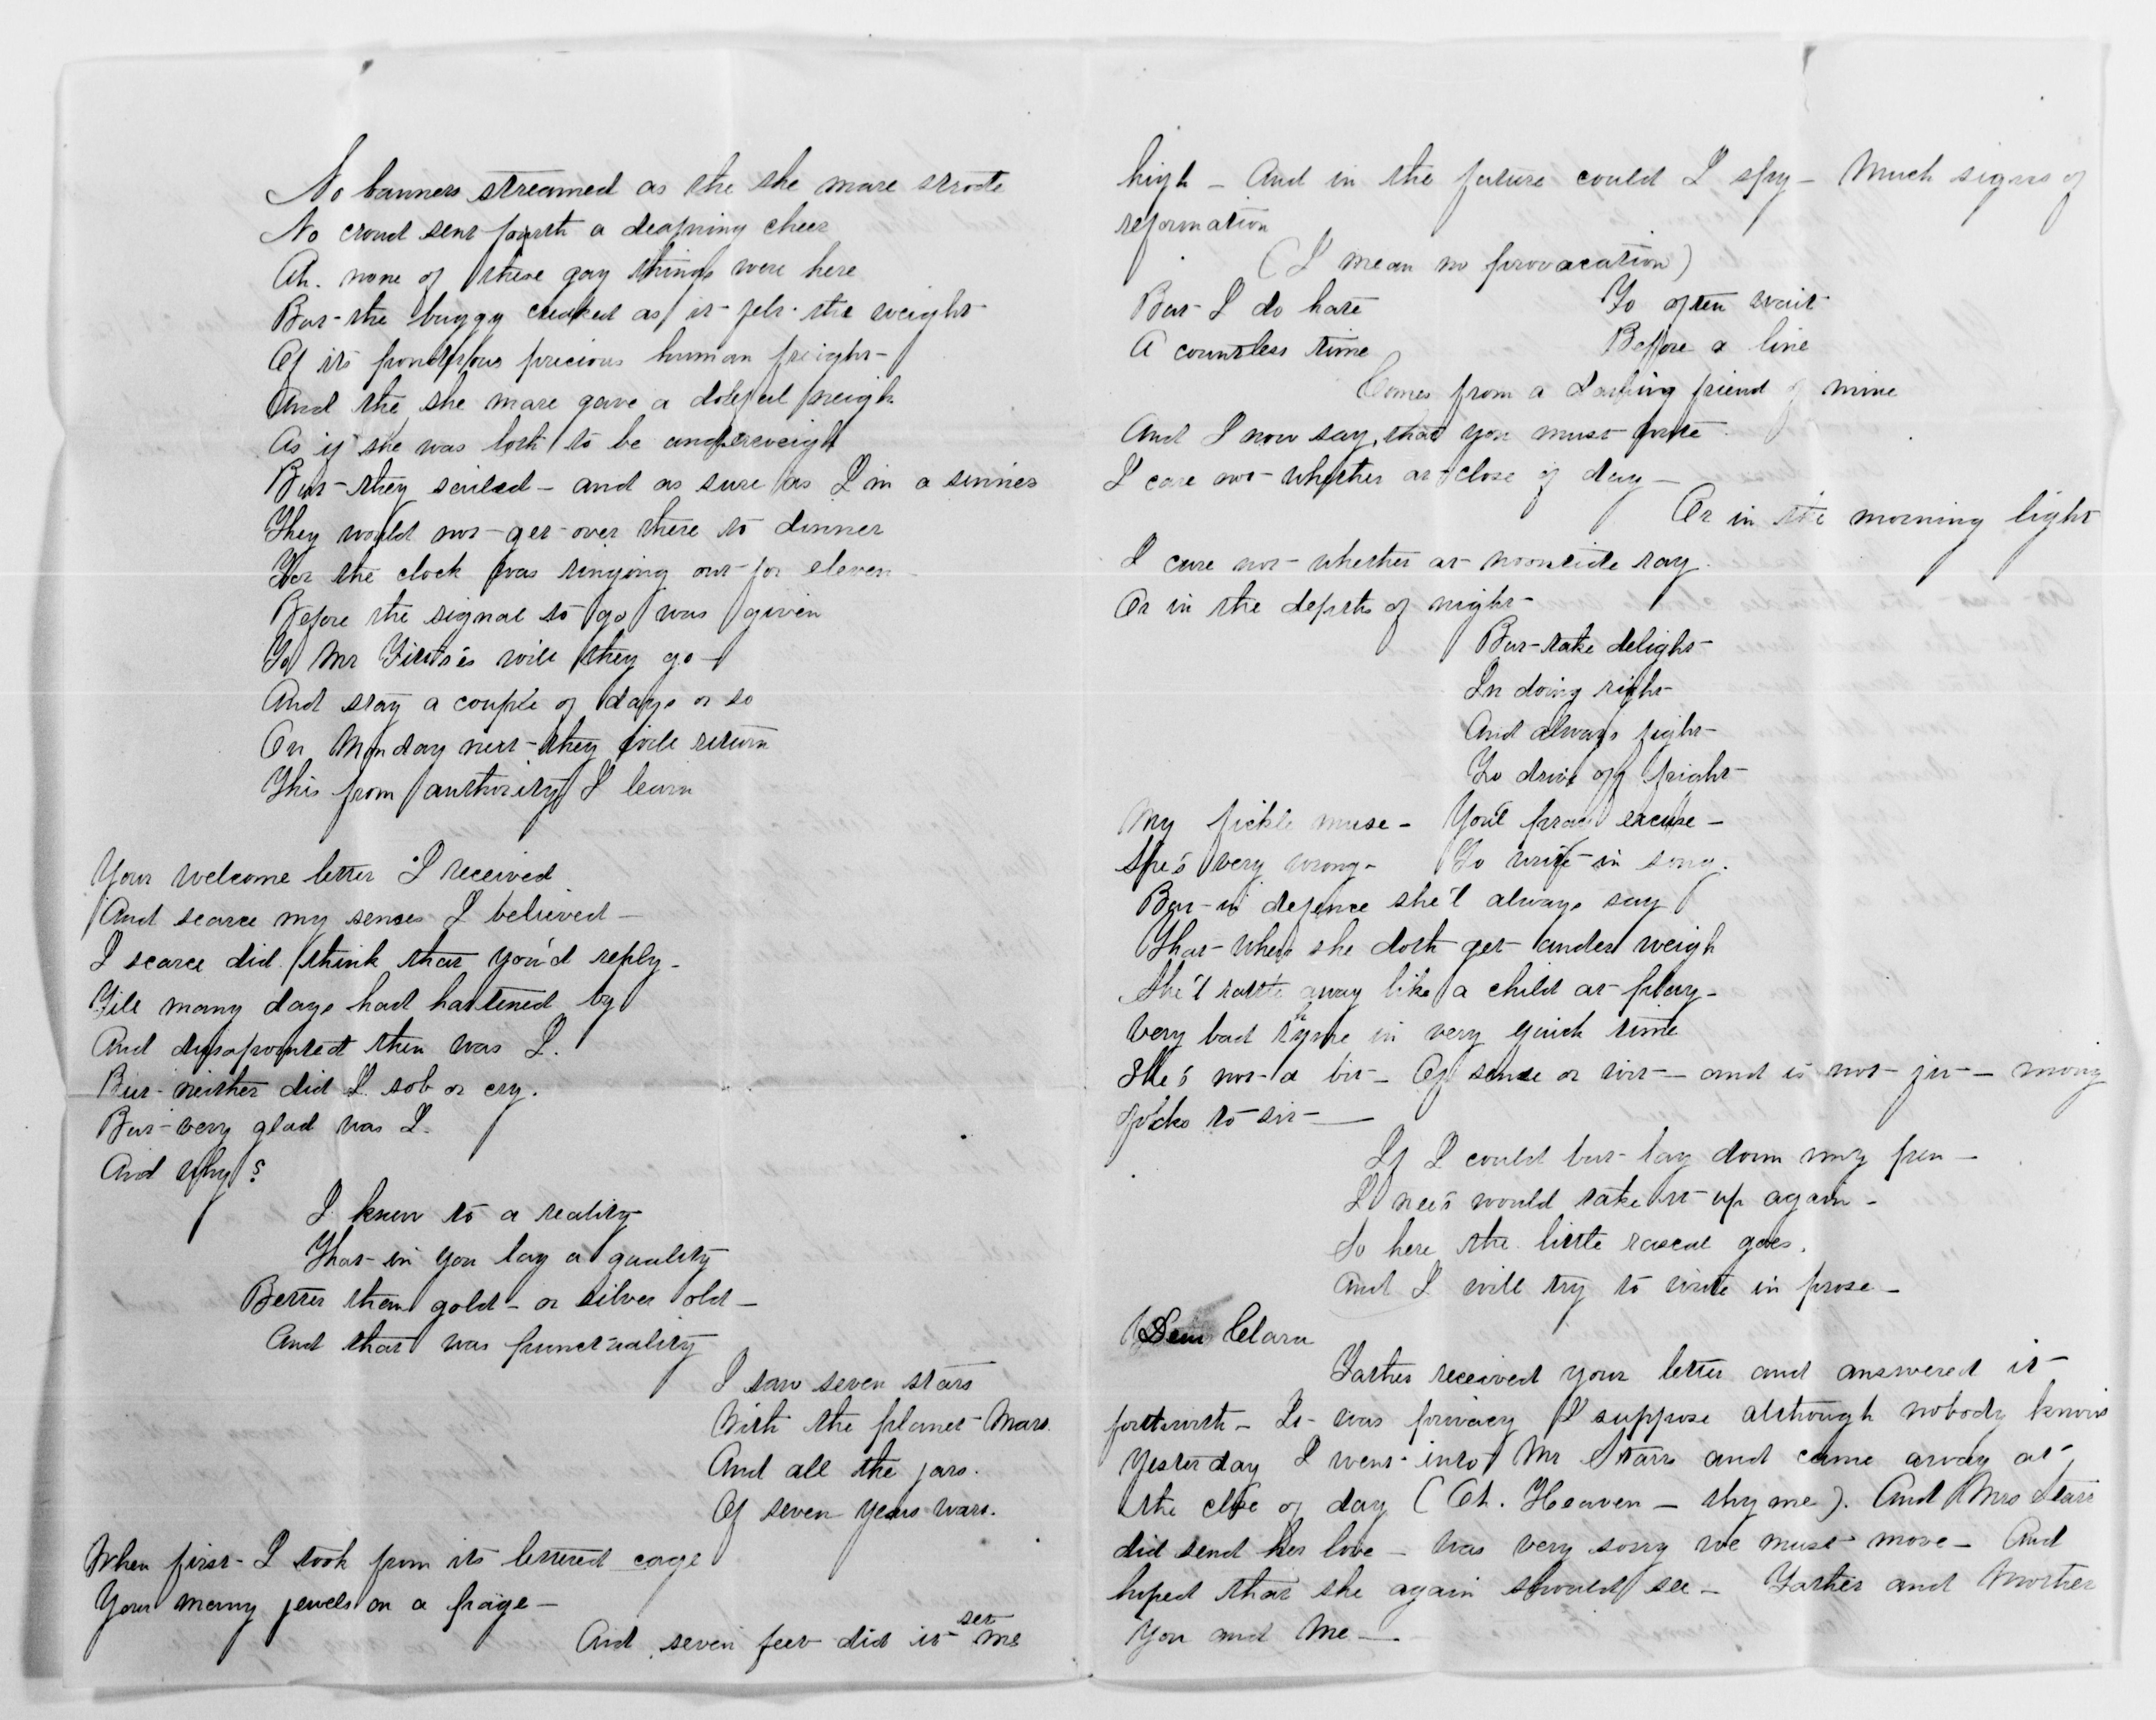 No banners streamed as the she mare strode
No croud sent fourth a deafning cheer
Ah. none of these gay things were here
But the buggy creaked as it felt the weight
Of its pondrous precious human freight
And the she mare gave a doleful neigh
As if she was loth to be underweigh
But they sailed - and as sure as I'm a sinner
They would not get over there to dinner
For the clock was ringing out for eleven
Before the signal to go was given
To Mr will they go
And stay a couple of days or so
On Monday next they will return
This from authority I learn
Your welcome letter I received
And scarce my senses I believed
I scarce did think that you'd reply
Till many days had hastened by
And disapointed then was I.
But neither did I sob or cry.
But very glad was I.
And why?
I knew to a reality
That in you lay a quality
Better than gold - or silver old
And that was punctuality
I saw seven stars
With the planet Mars
And all the jars.
Of seven years wars.
When first I took from its lettered cage
Your many jewels on a page -
And seven feet did it set me
high - And in the future could I spy - Much signs of
reformation
(I mean no provacation)
But I do hate To often wait
A countless time Before a line
Comes from a darling friend of mine
And I now say, that you must write
I care not whether at close of day -
Or in the morning light
I care not whether at noontide ray.
Or in the depths of night
But take delight
In doing right
And always fight
To drive off fright
My fickle muse - You'l pray excuse -
She's very wrong - To write in song.
But in defence she'l always say
That when she doth get under weigh
She'l rattle away like a child at play -
Very bad rhyme in very quick time
She's not a bit - Of sense or wit - and is not fit - mong
folks to sit -
If I could but lay down my pen -
I ne'er would take it up again -
So here the little rascal goes.
And I will try to write in prose -
Dear Clara
Father received your letter and answered it
forthwith - It was privacy I suppose although nobody knows
Yesterday I went into Mr Starrs and came away at
the close of day (Oh. Heaven - rhyme). And Mrs Starr
did send her love - was very sorry we must move - And
hoped that she again should see - Father and Mother
You and Me -